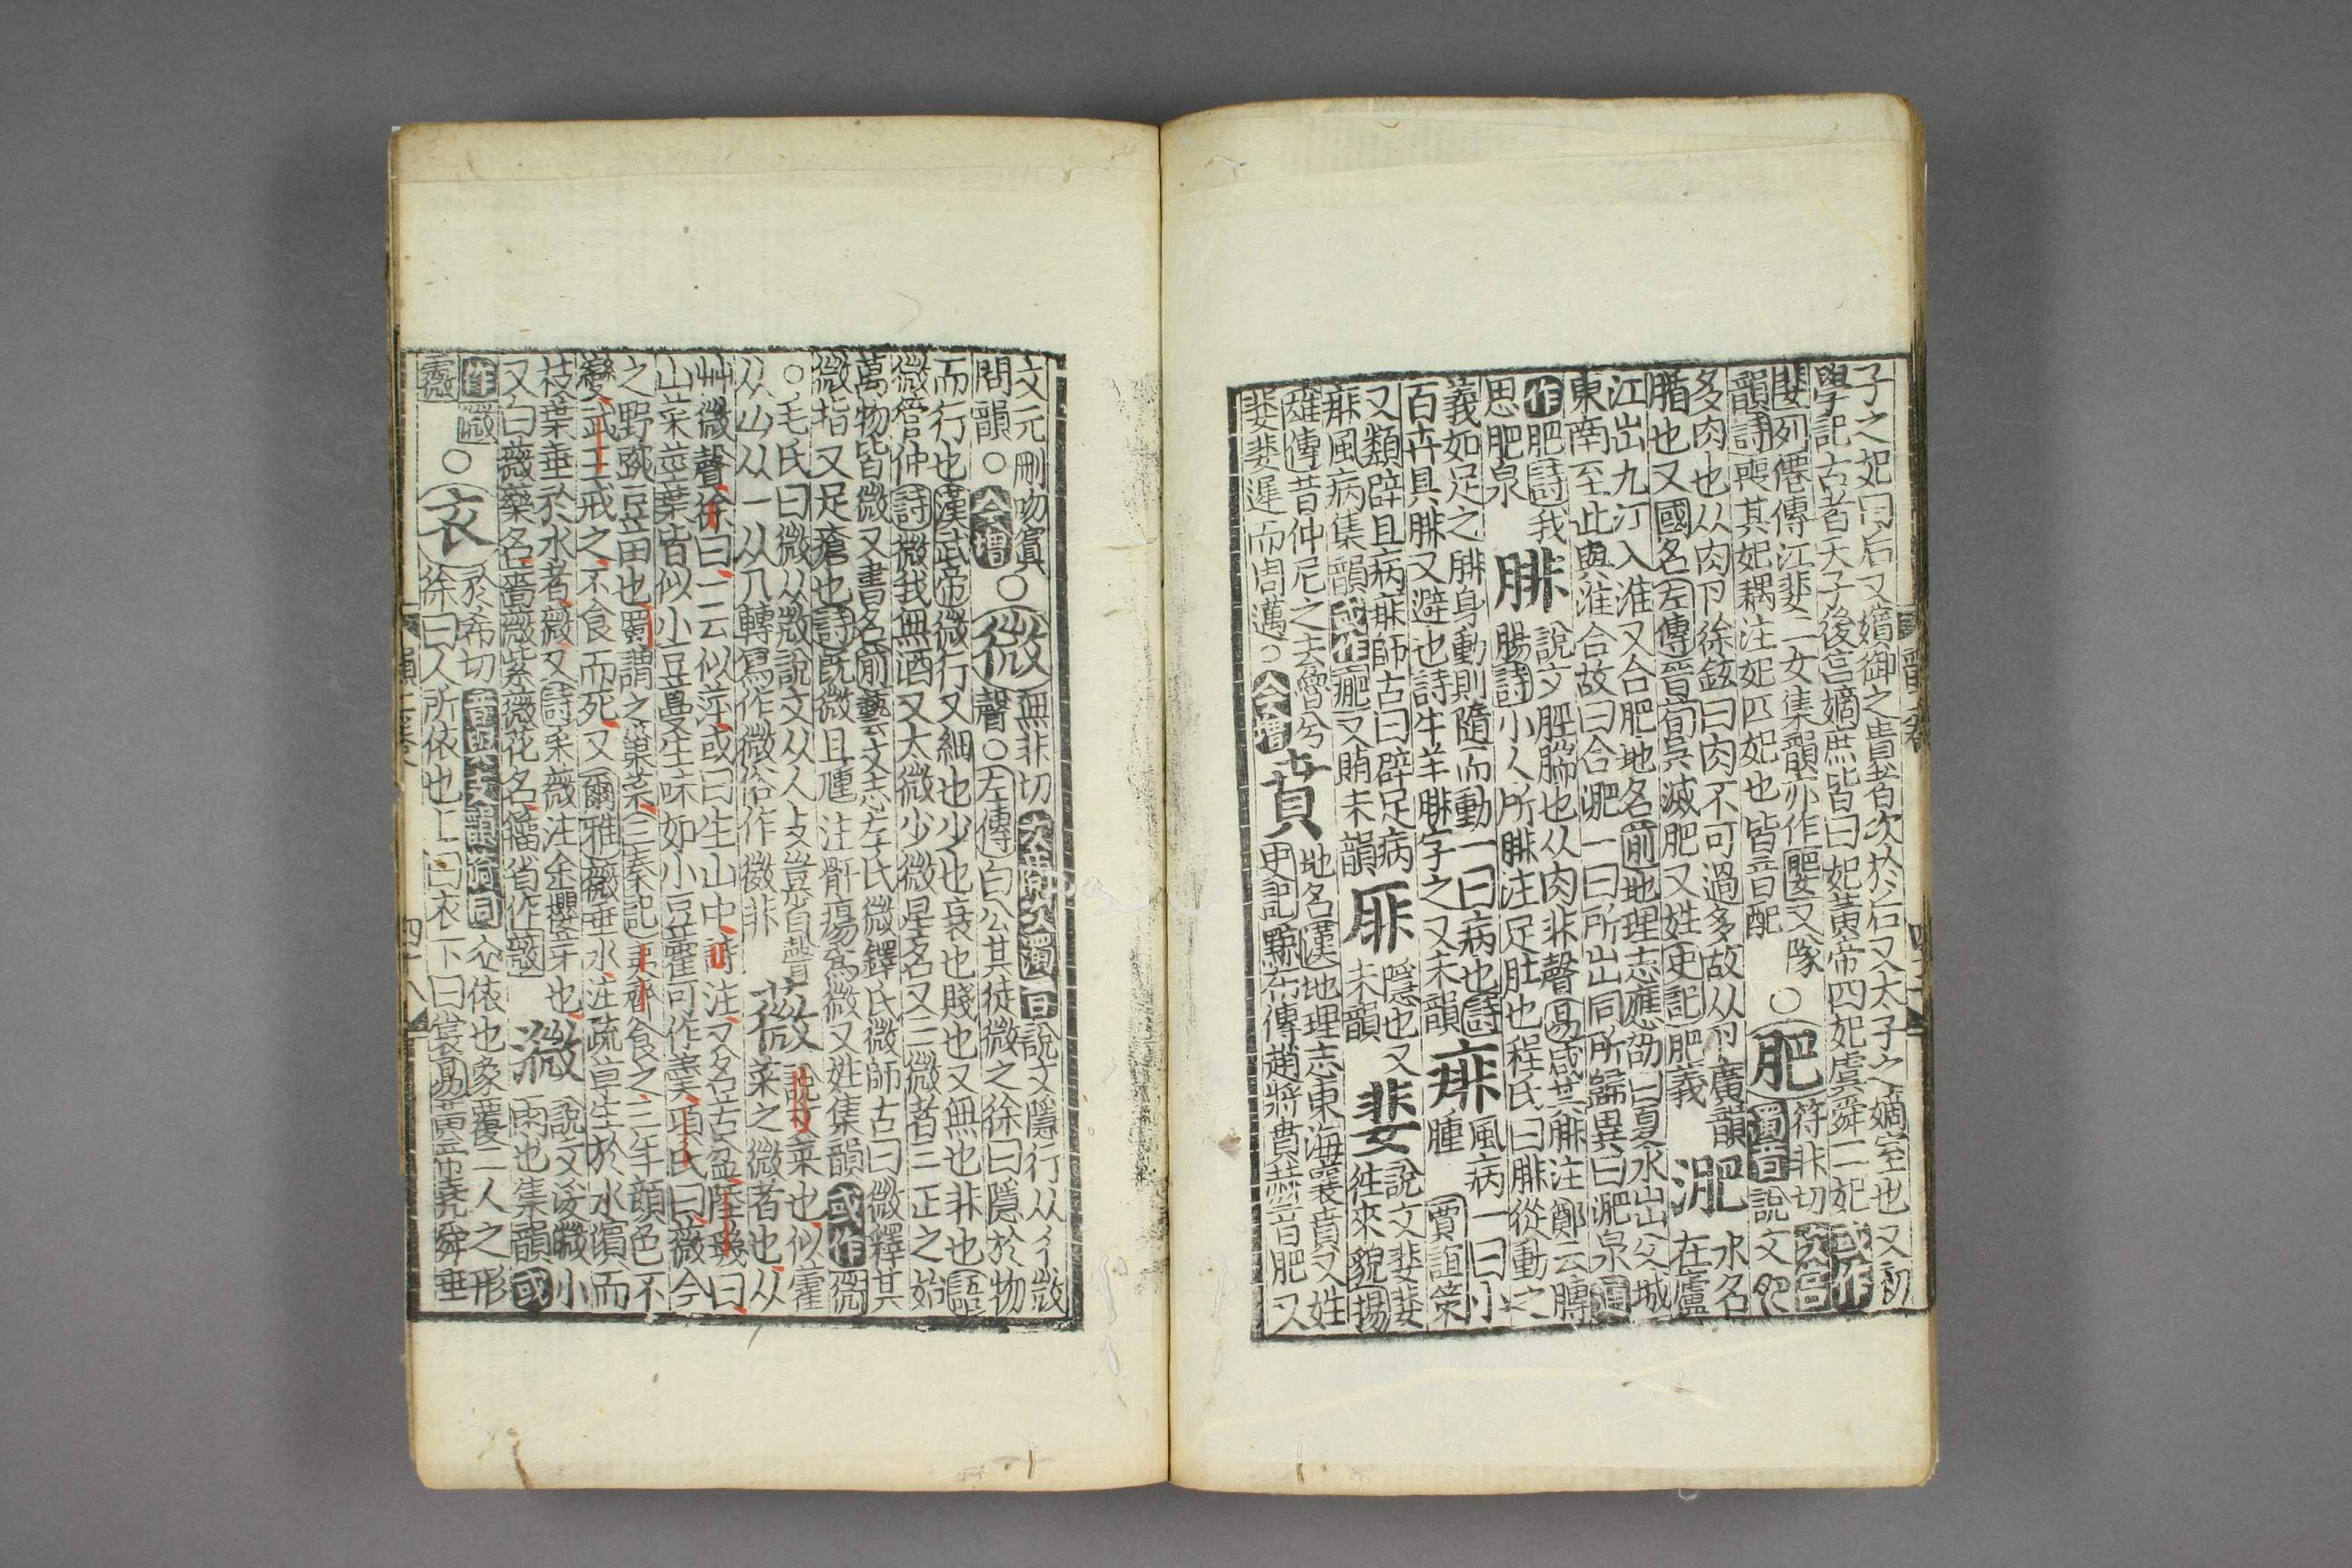 子之妃曰后又嬪御之貴者次於后又太子之嫡室也又初
學記古者天子後宮嫡庶皆曰妃黃帝四妃虞舜二妃或作
婓列僊傳江婓二女集韻亦作𡝩又隊
韻詩喪其妃耦注妃匹妃也皆音配
○肥
符非切次宮
濁音說文肥
多肉也从肉卪徐鉉曰肉不可過多故从卪廣韻
腯也又國名左傳晉荀吳滅肥又姓史記肥義
淝
水名
在廬
江出九江入淮又合肥地名前地理志應劭曰夏水出父城
東南至此與淮合故曰合淝一曰所出同所歸異曰淝泉通
作肥詩我
思肥泉
腓
說文脛腨也从肉非聲易咸其腓注鄭云膞
腸詩小人所腓注足肚也程氏曰腓從動之
義如足之腓身動則隨而動一曰病也詩
百卉具腓又避也詩牛羊腓字之又未韻
痱
風病一曰小
腫賈誼策
又類辟且病痱師古曰辟足病
痱風病集韻或作疿又賄未韻
厞
隱也又
未韻
婓
說文婓婓
往來貌揚
雄傳昔仲尼之去魯兮
婓婓遲而周邁○公增
蕡
地名漢地理志東海襄賁又姓
史記黥布傳趙將賁赫音肥又
文元刪吻寘
問韻○公增
○微
無非切次商次濁音說文隱行从彳𢼸
聲○左傳白公其徒微之徐曰隱於物
而行也漢武帝微行又細也少也衰也賤也又無也非也語
微管仲詩微我無酒又太微少微星名又三微者三正之始
萬物皆微又書名前藝文志左氏微鐸氏微師古曰微釋其
微指又足瘡也詩旣微且尰注骭瘍爲微又姓集韻或作
○毛氏曰微从𢼸說文从人攴豈省聲
从山从一从几轉寫作微俗作㣲非
薇
說文菜也似藿
菜之微者也从
艸微聲徐曰一云似萍或曰生山中詩注又名苦益陸璣曰
山菜莖葉皆似小豆蔓生味如小豆藿可作羹項氏曰薇今
之野豌豆苗也蜀謂之巢菜三秦記夷齊食之三年顏色不
變武王戒之不食而死又爾雅薇垂水注疏草生於水濱而
枝葉垂於水者薇又詩采薇注金櫻芽也
又白薇藥名薔薇紫薇花名籀省作
溦
說文浽溦小
雨也集韻或
作溦
霺
○衣
於希切音與支韻漪同㐆依也象覆二人之形
徐曰人所依也上曰衣下曰裳易黃帝堯舜垂